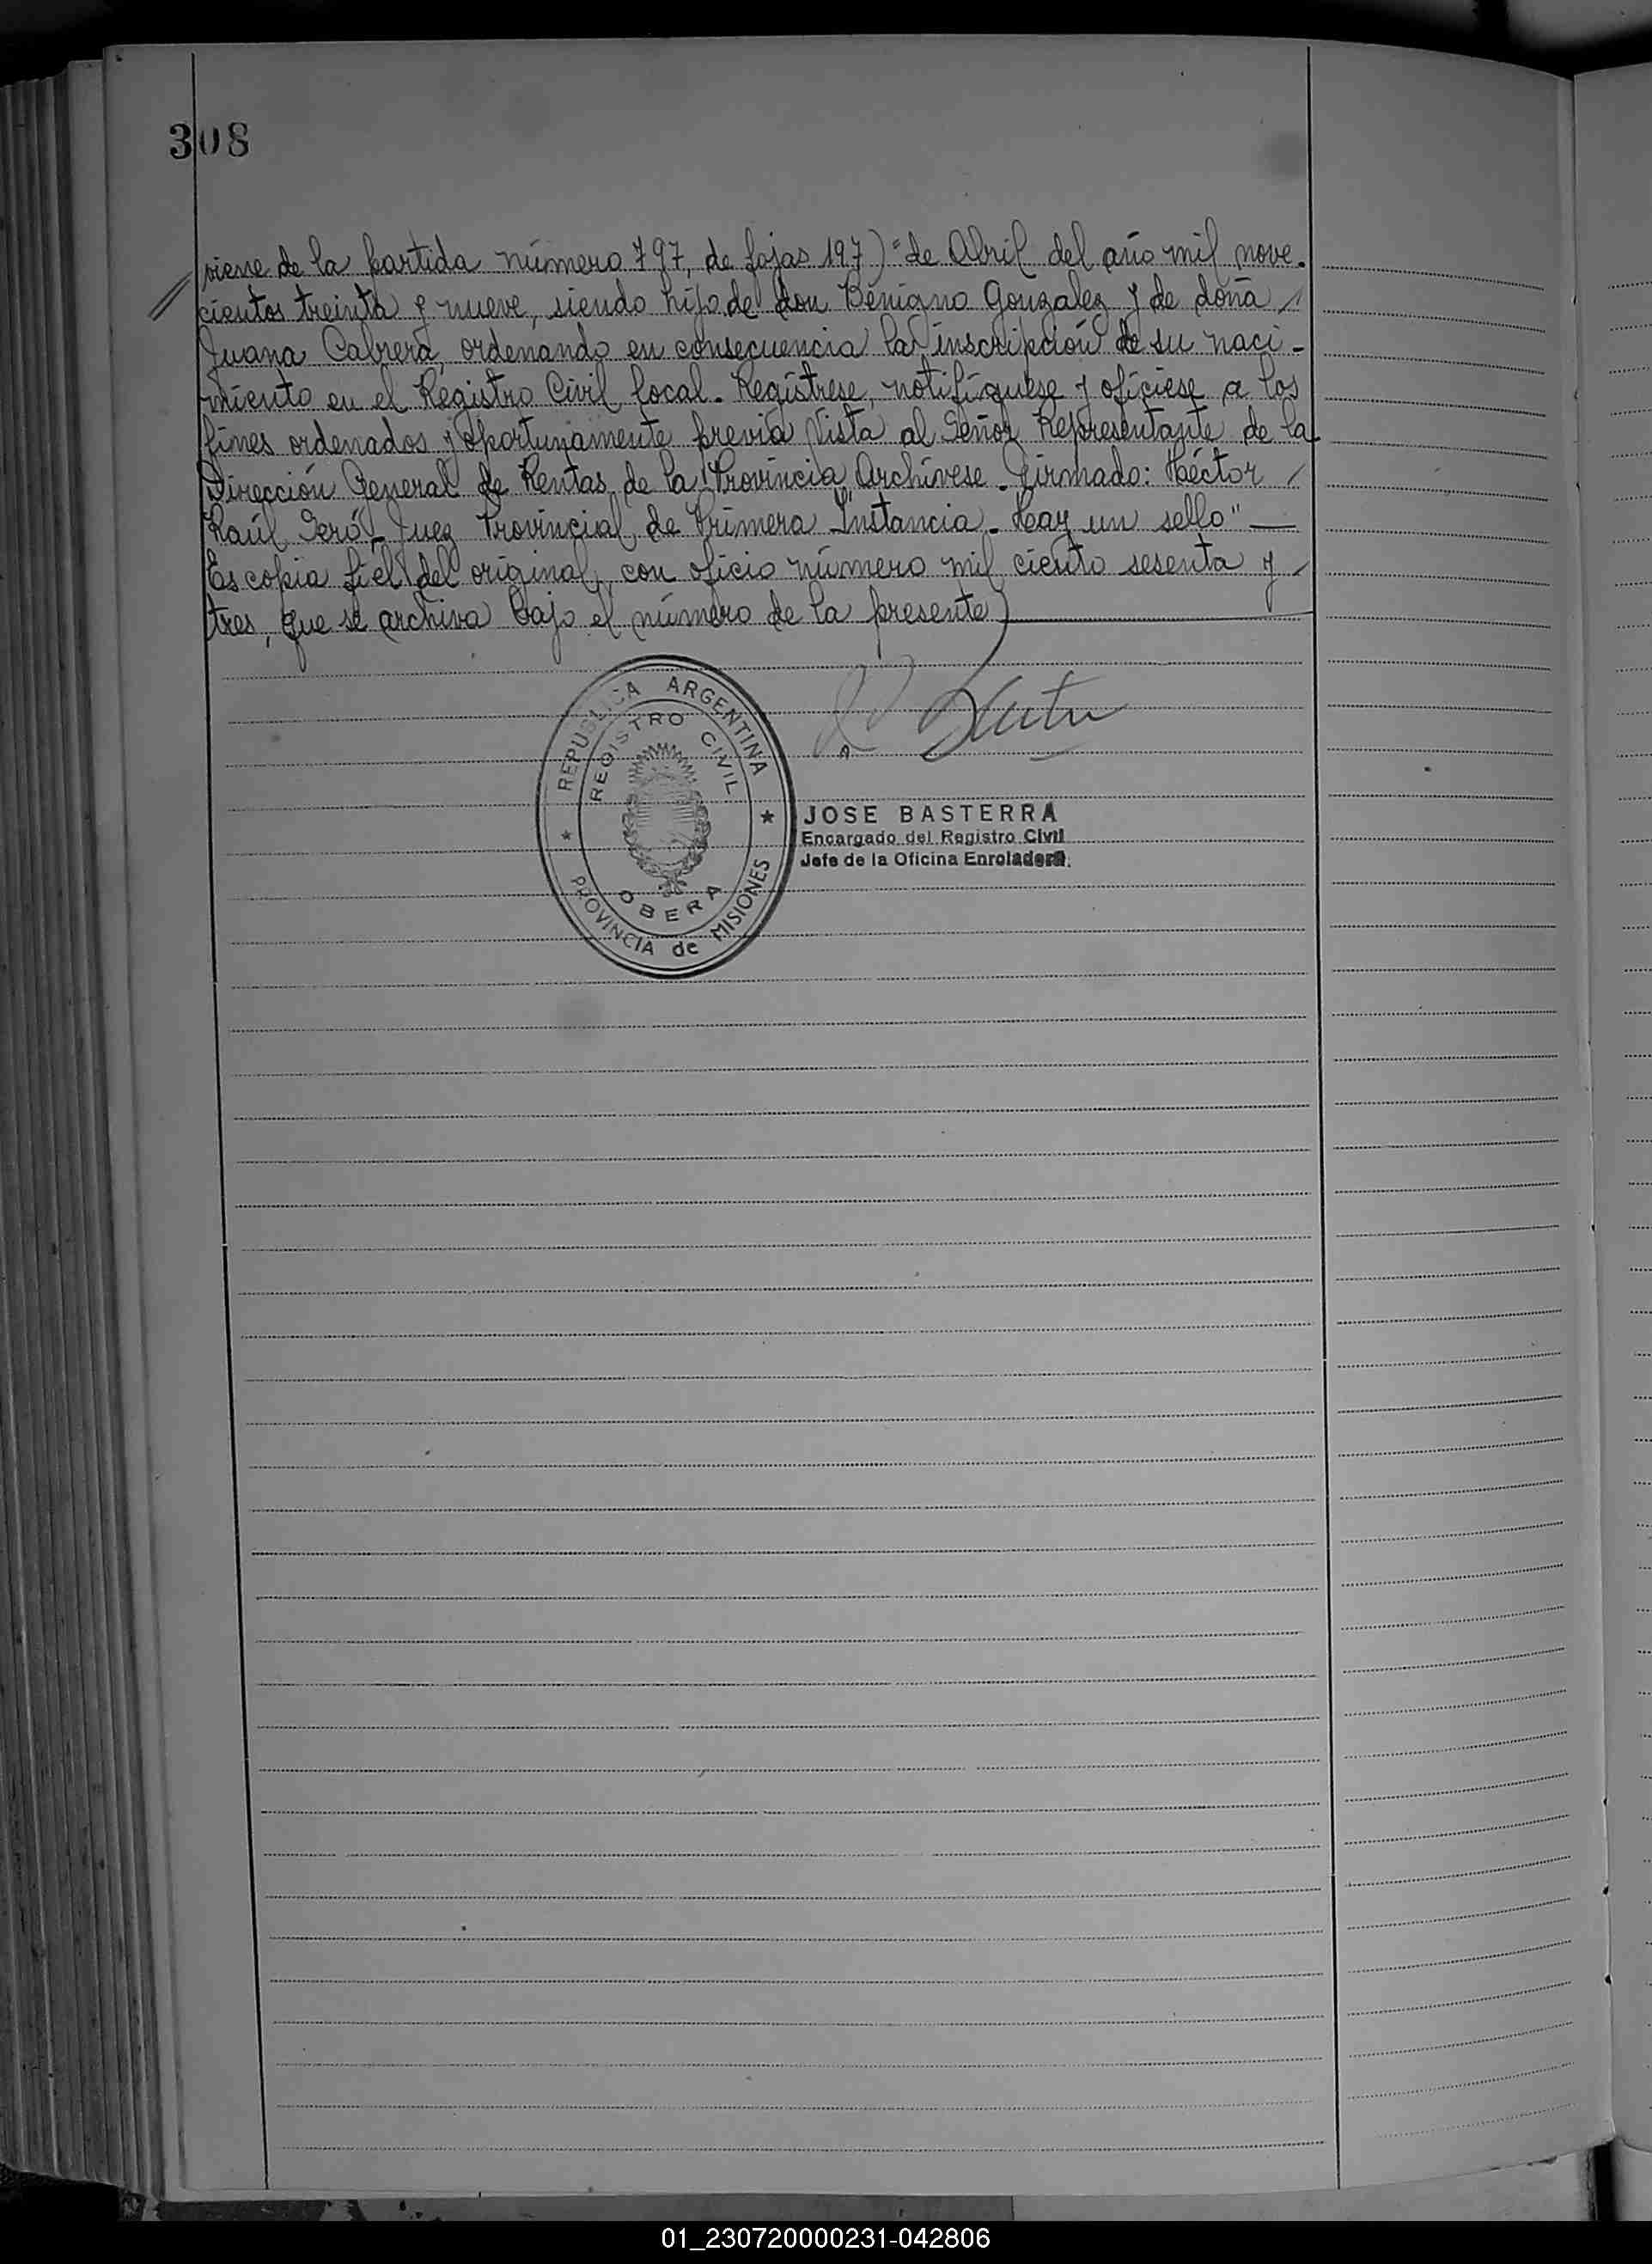 308
viene de la partida número 797, de fojas 197) "de Abril del año mil nove-
cientos treinta y nueve, siendo hijo de don Benigno Gonzalez y de doña /
Juana Cabrera, ordenando en consecuencia la inscripción de su naci-
miento en el Registro Civil local. Regístrese, notifíquese y ofíciese a los
fines ordenados y oportunamente previa Vista al Señor Representante de la
Dirección General de Rentas de la Provincia, Archívese. Firmado: Héctor /
Raúl Juez Provincial de Primera Instancia. Hay un sello" —
Es copia fiel del original, con oficio número mil ciento sesenta y /
tres, que se archiva bajo el número de la presente
REPUBLICA ARGENTINA
REGISTRO CIVIL
OBERA
PROVINCIA de MISIONES
JOSE BASTERRA
Encargado del Registro Civil
Jefe de la Oficina Enroladora
01_230720000231-042806